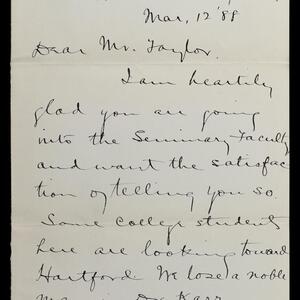 Mar, 12 '88
Dear Mr. Taylor.
I am heartily
glad you are going
into the Seminary Faculty
and want the satisfac
tion of telling you so.
Some college students
here are looking toward
Hartford We lose a noble
Karr